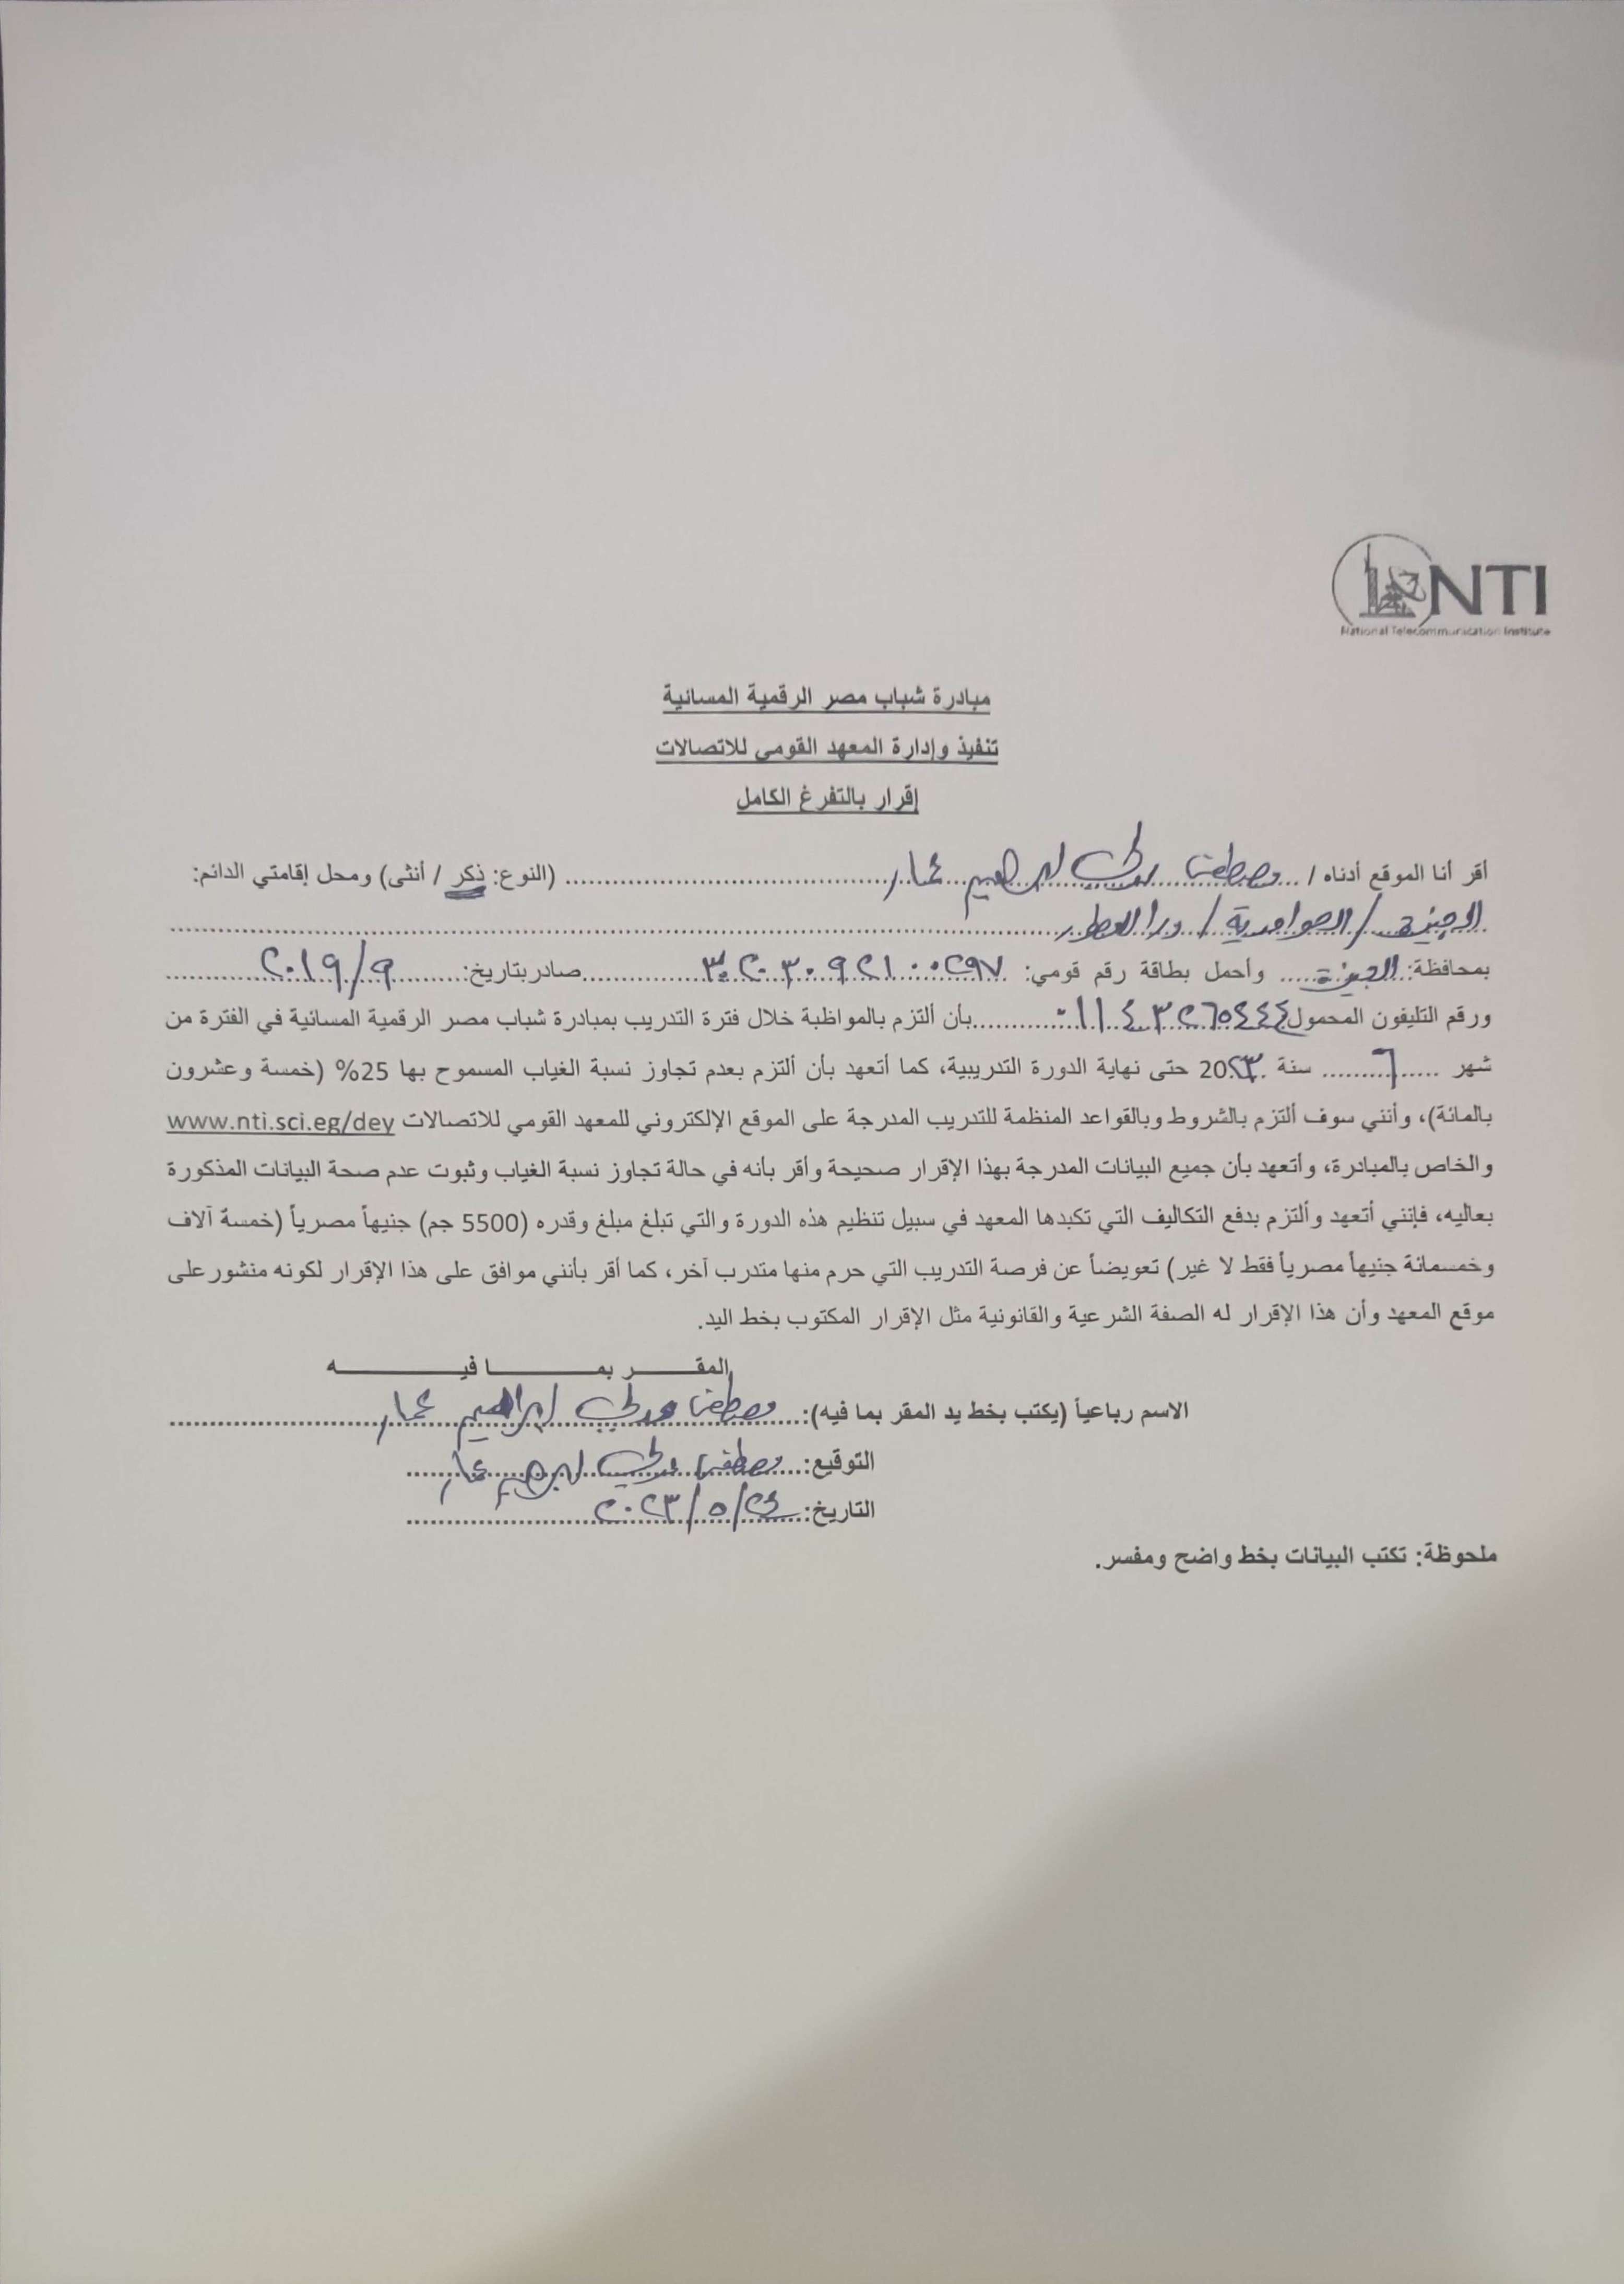 NTI
National Telecommunication Institute
مبادرة شباب مصر الرقمية المسائية
تنفيذ وإدارة المعهد القومي للاتصالات
إقرار بالتفرغ الكامل
أقر أنا الموقع أدناه / مصطفى ابراهيم عمار (النوع: ذكر / أنثى) ومحل إقامتي الدائم:
الجيزة / الحوامدية /
بمحافظة: الجيزة وأحمل بطاقة رقم قومي: ٣٠٢٠٣٠٩٢١٠٠٢٩٧ صادر بتاريخ: ٢٠١٩/٩
ورقم التليفون المحمول ٠١١٤٣٢٦٥٤٤٤ بأن ألتزم بالمواظبة خلال فترة التدريب بمبادرة شباب مصر الرقمية المسائية في الفترة من
شهر ٦ سنة 20٢٣ حتى نهاية الدورة التدريبية، كما أتعهد بأن ألتزم بعدم تجاوز نسبة الغياب المسموح بها 25% (خمسة وعشرون
بالمائة)، وأنني سوف ألتزم بالشروط وبالقواعد المنظمة للتدريب المدرجة على الموقع الإلكتروني للمعهد القومي للاتصالات www.nti.sci.eg/dey
والخاص بالمبادرة، وأتعهد بأن جميع البيانات المدرجة بهذا الإقرار صحيحة وأقر بأنه في حالة تجاوز نسبة الغياب وثبوت عدم صحة البيانات المذكورة
بعاليه، فإنني أتعهد وألتزم بدفع التكاليف التي تكبدها المعهد في سبيل تنظيم هذه الدورة والتي تبلغ مبلغ وقدره (5500 جم) جنيهاً مصرياً (خمسة آلاف
وخمسمائة جنيهاً مصرياً فقط لا غير) تعويضاً عن فرصة التدريب التي حرم منها متدرب آخر، كما أقر بأنني موافق على هذا الإقرار لكونه منشور على
موقع المعهد وأن هذا الإقرار له الصفة الشرعية والقانونية مثل الإقرار المكتوب بخط اليد.
المقـــر بمـــا فيـــه
الاسم رباعياً (يكتب بخط يد المقر بما فيه): مصطفى ابراهيم عمار
التوقيع: مصطفى ابراهيم عمار
التاريخ: ٢٤/٥/٢٠٢٣
ملحوظة: تكتب البيانات بخط واضح ومفسر.